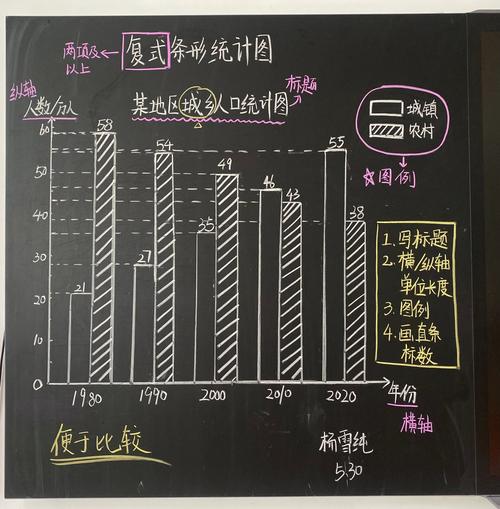 两项及以上
复式条形统计图
标题
某地区城乡人口统计图
纵轴
人数/万人
城镇
农村
☆图例
60
50
40
30
20
10
0
21
58
27
54
35
49
46
43
55
38
1980
1990
2000
2010
2020
年份
横轴
1.写标题
2.横/纵轴
单位长度
3.图例
4.画直条
标数
便于比较
杨雪纯
5.30